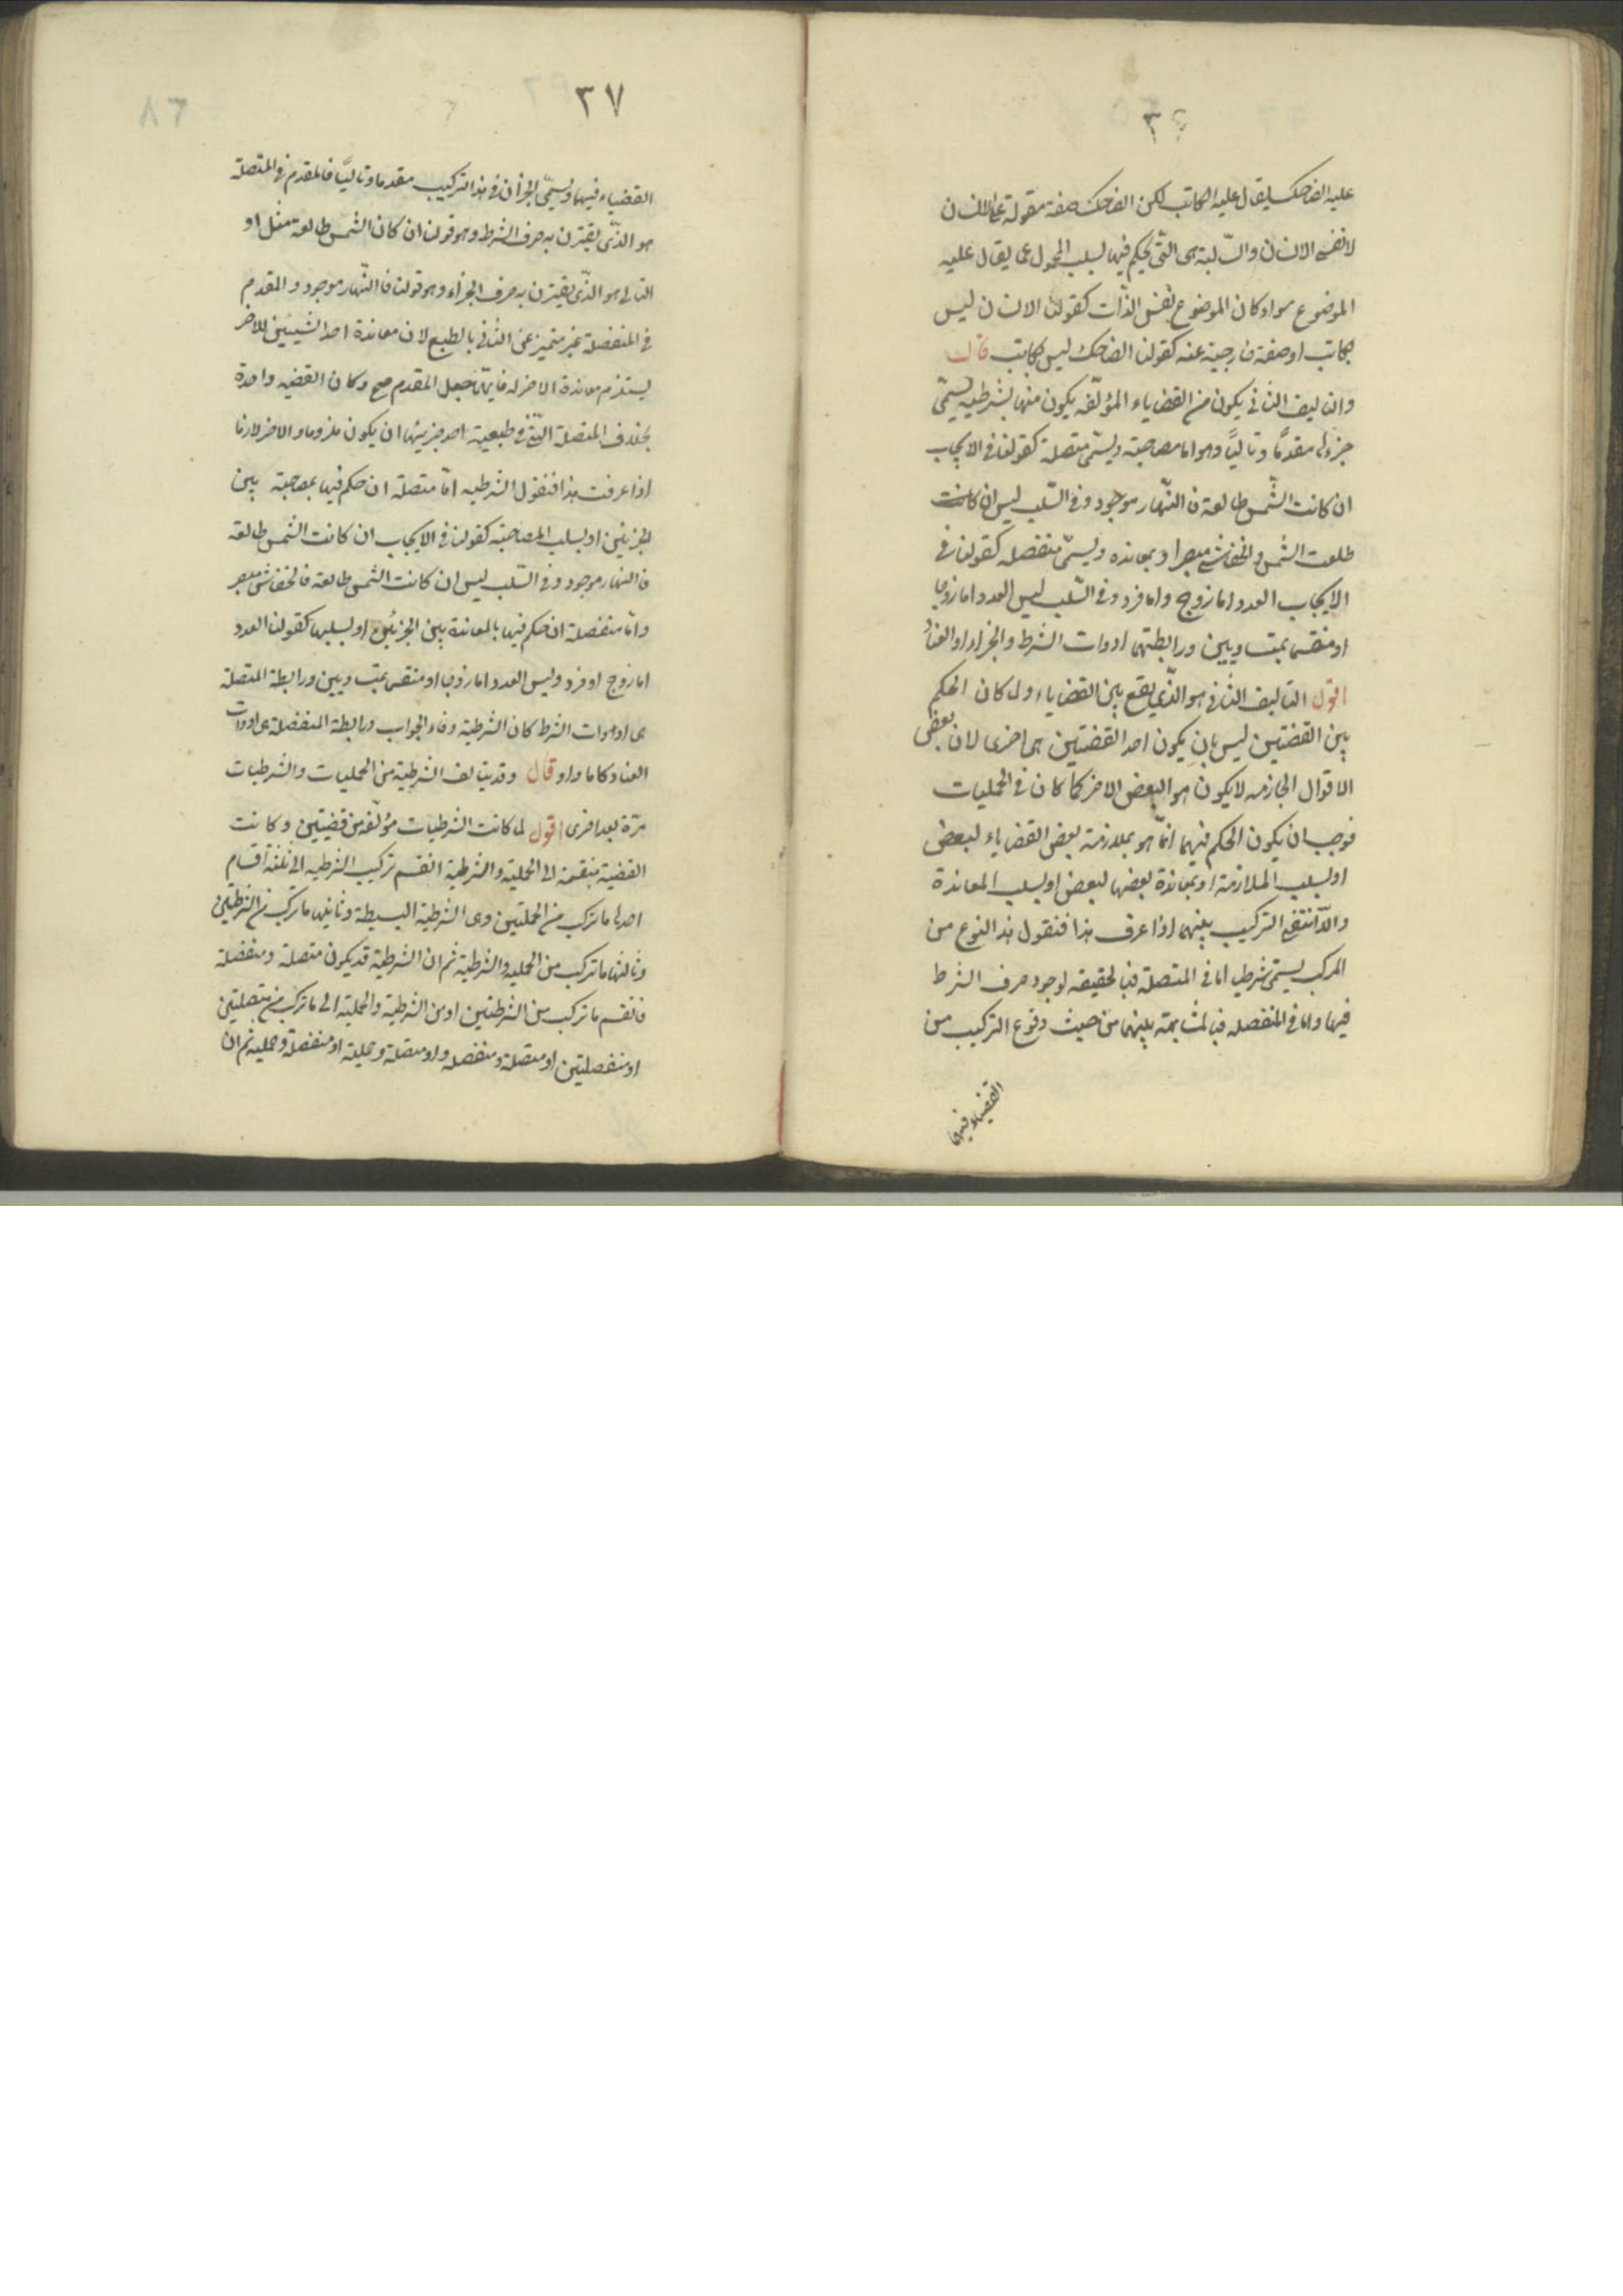 ٣٤
عليه الضاحك ليقال عليه الكاتب لكن الضاحك صفة مقولة على الانسان
لا نفس الانسان والسّالبة هى التّى يحكم فيها بسلب المحمول عما يقال عليه
الموضوع سواء كان الموضوع نفس الذّات كقولنا الانسان ليس
بكاتب او صفة خارجية عنه كقولنا الضاحك ليس بكاتب قال
والتاليف الثانى يكون من القضاياء المؤلّفه يكون منها شرطيه يسمّى
جزءاها مقدمًا وتاليًا وهو اما مصاحبة ويسمّى متصلة كقولنا فى الايجاب
ان كانت الشّمس طالعة فالنّهار موجود وفى السّلب ليس ان كانت
طلعت الشمس والخفاش مبصر او بمعانده ويسمّى منفصله كقولنا فى
الايجاب العدد اما زوج واما فرد وفى السّلب ليس العدد اما زوجا
او منقسم بمتساويين ورابطتهما ادوات الشرط والجزاء او العناد
اقول التاليف الثانى هو الذّى يقع بين القضاياء ولما كان الحكم
بين القضتين ليس بان يكون احد القضتين هى اخرى لان بعض
الاقوال الجازمه لا يكون هو البعض الاخر كما كان فى الحمليات
فوجب ان يكون الحكم فيهما انمّا هو بملازمة بعض القضاياء لبعض
او بسلب الملازمة او بمعاندة بعضها لبعض او بسلب المعاندة
والّا انتفى التركيب بينهما اذا عرف هذا فنقول هذا النوع من
المركب يسمّى شرطيا اما فى المتصلة فبالحقيقه لوجود حرف الشرط
فيها واما فى المنفصله فبالمشابهة بينهما من حيث وقوع التركيب من
القضياء فيها
٣٧
القضياء فيها ويسمىّ الجزأن فى هذا التركيب مقدما وتاليًا فالمقدم فى المتصلة
هو الذّى يقترن به حرف الشرط وهو قولنا ان كان الشمس طالعة مثلا و
التالى هو الذّى يقترن به حرف الجزاء وهو قولنا فالنّهار موجود والمقدم
فى المنفصلة غير متميز عن الثانى بالطبع لان معاندة احد الشيئين للاخر
يستلزم معاندة الاخر له فايّهما جعل المقدم صح وكان القضيه واحدة
بخلاف المتصلة التى فى طبيعية احد جزيئها ان يكون ملزوما والاخر لازما
اذا عرفت هذا فنقول الشرطيه امّا متصلة ان حكم فيها بمصاحبة بين
الجزئين او بسلب المصاحبته كقولنا فى الايجاب ان كانت الشمس طالعة
فالنهار موجود وفى السّلب ليس ان كانت الشمس طالعة فالخفاش مبصر
وامّا منفصلة ان حكم فيها بالمعاندة بين الجزئين او بسلبها كقولنا العدد
اما زوج او فرد وليس العدد اما زوجا او منقسم بمتساويين ورابطة المتصلة
هى ادوات الشرط كان الشرطية وفاء الجواب ورابطة المنفصلة هى ادوات
العناد كاما واو وقال وقد يتالف الشرطية من الحمليات والشرطيات
مرّة بعد اخرى اقول لما كانت الشرطيات مؤلّفه من قضيتين وكانت
القضية منقسمة الى الحملية والشرطية انقسم تركيب الشرطيه الى ثلثة اقسام
احدها ما تركب من الحمليتين وهى الشرطية البسيطة وثانيها ما تركب من الشرطيتين
وثالثها ما تركب من الحمليه والشرطية ثم ان الشرطية قد يكون متصلة ومنفصلة
فانقسم ما تركب من الشرطيتين او من الشرطية والحملية الى ما تركب من متصلتين
او منفصلتين او متصلة ومنفصله او متصلة وحملية او منفصلة وحمليه ثم ان